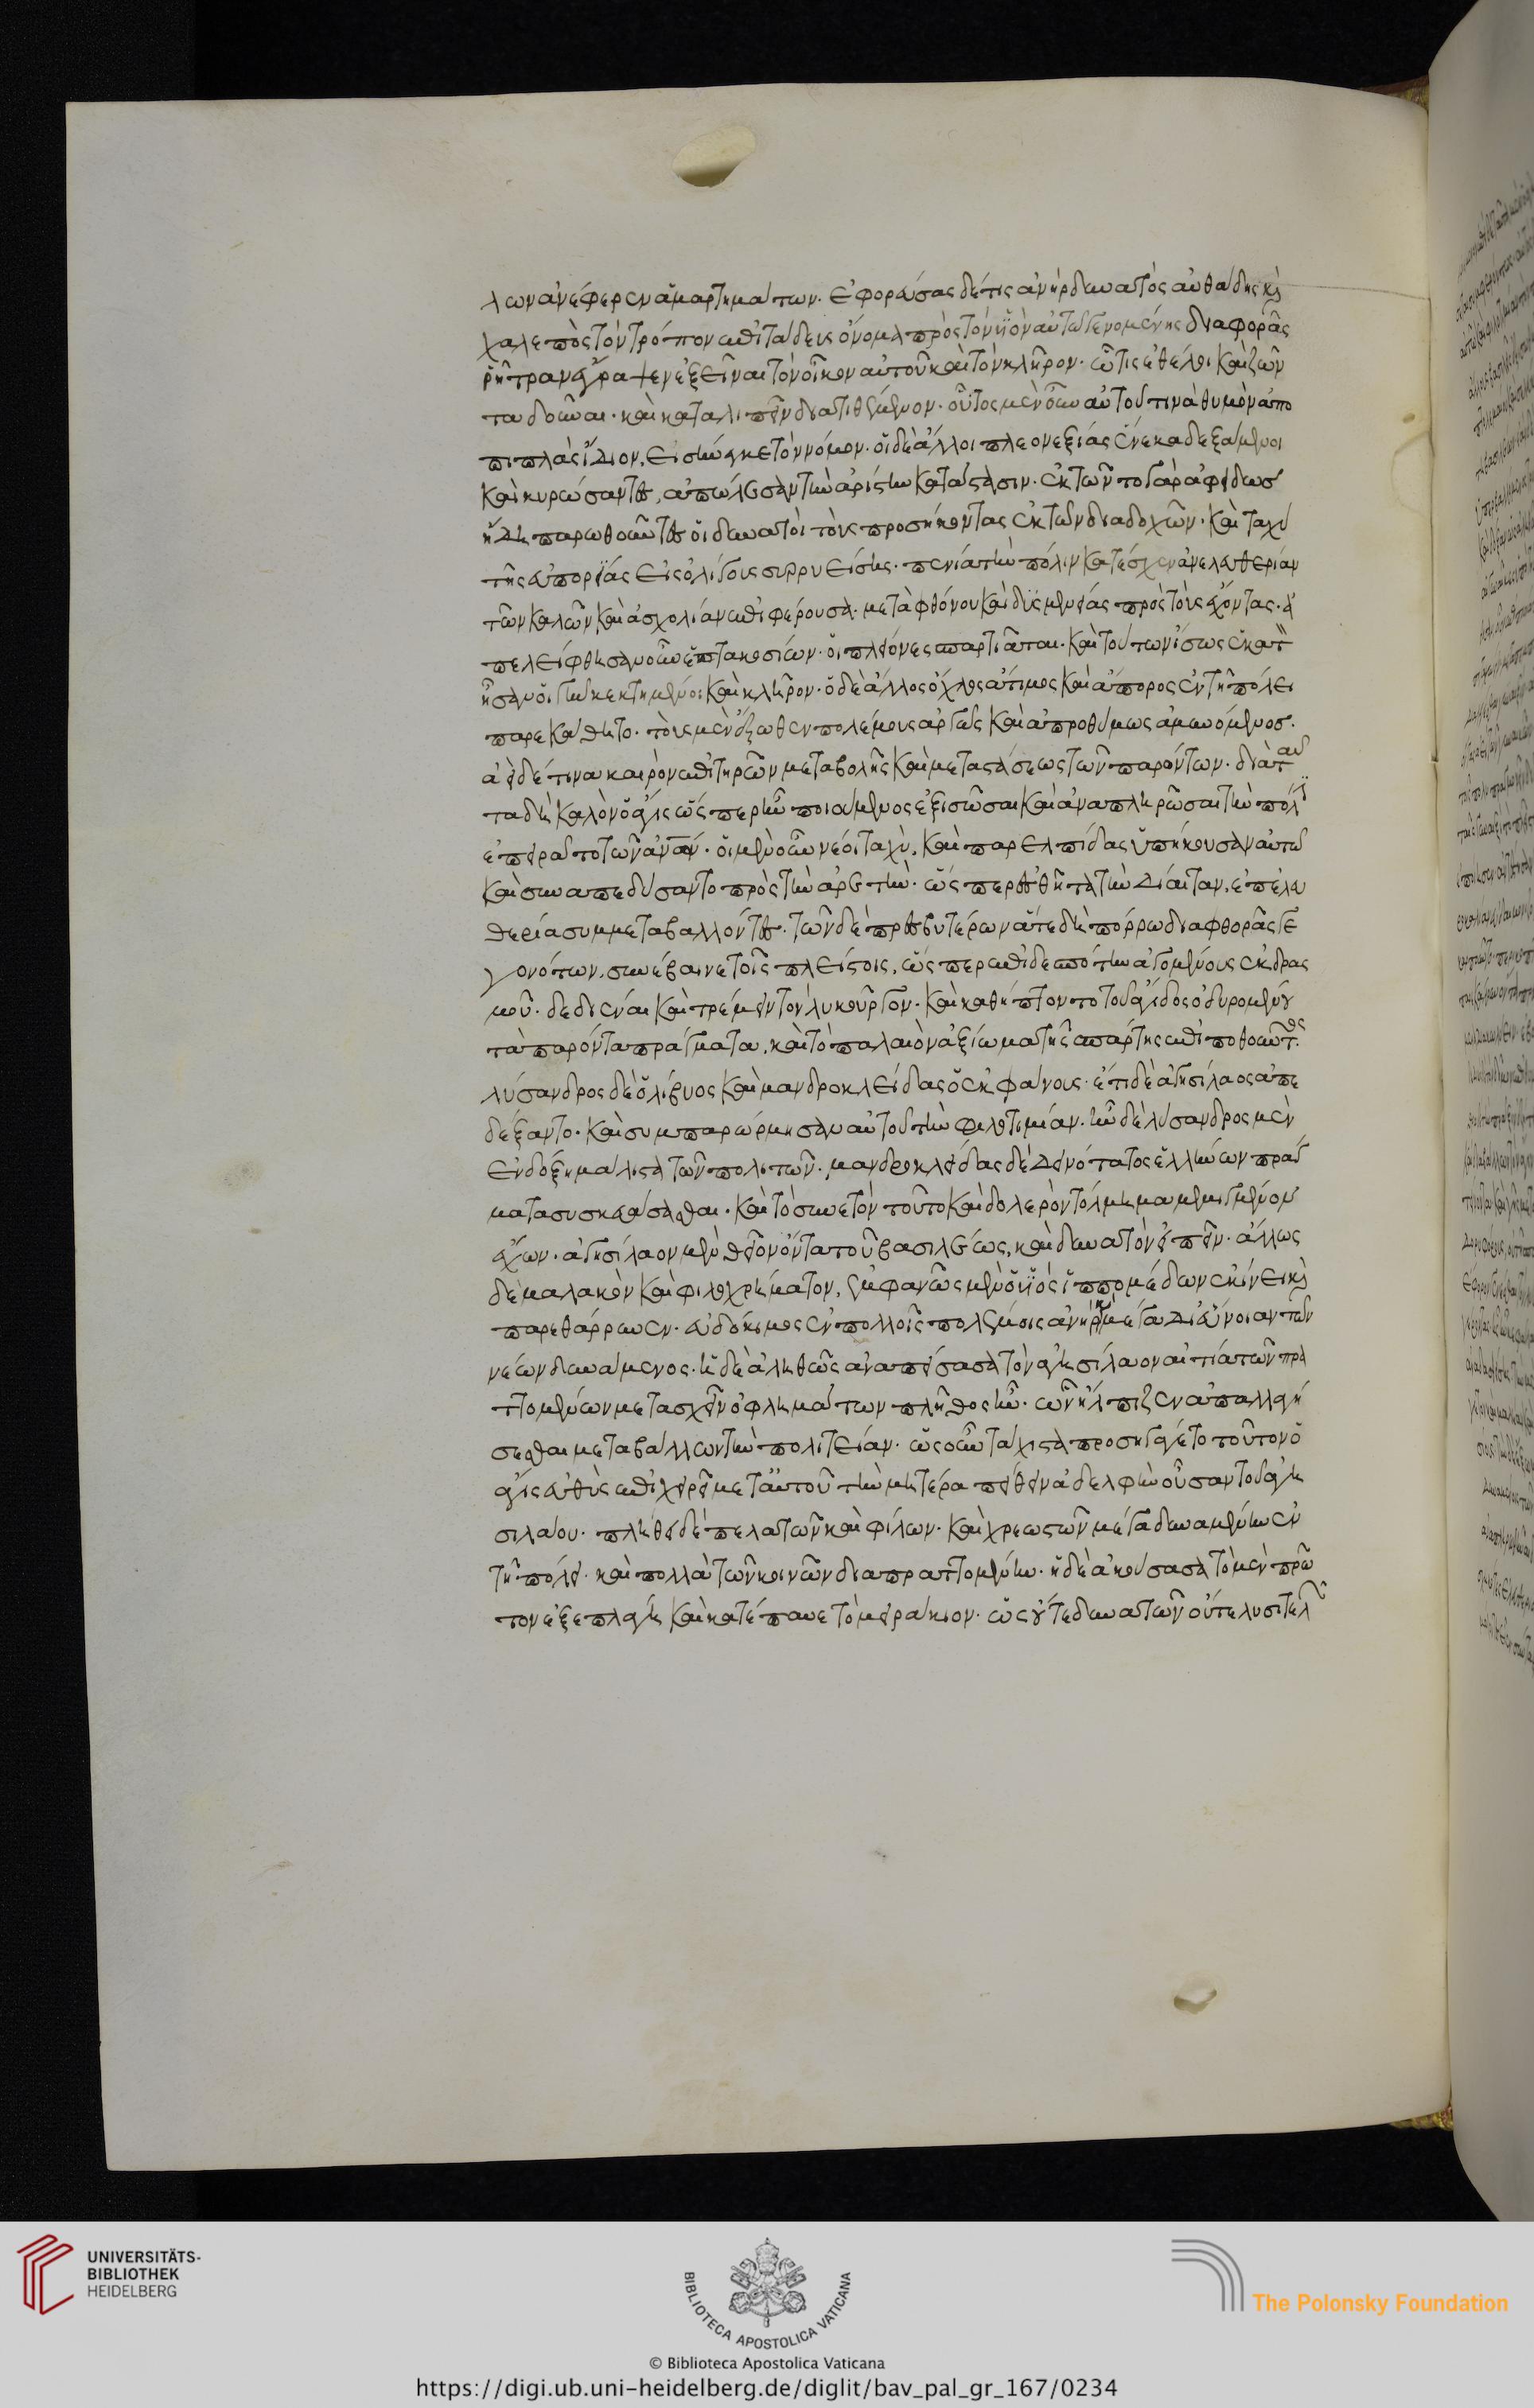 λων ἀνέφερεν ἁμαρτημάτων. ἐφορεύσας δέ τις ἀνὴρ δυνατὸς αὐθάδης καὶ
χαλεπὸς τὸν τρόπον ἐπιτάδευς ὄνομα πρὸς τὸν ϋἱὸν αὐτῶ γενομένης διαφορᾶς
ῥήτραν ἔγραψεν ἐξεῖναι τὸν οἶκον αὐτοῦ καὶ τὸν κλῆρον. ὧ τις ἐθέλοι καὶ ζῶν
τα δοῦναι. καὶ καταλιπεῖν διατιθέμενον. οὗτος μὲν οὖν αὑτοῦ τινὰ θυμὸν ἀπο
πιπλὰς ἴδιον, εἰσήνεγκε τὸν νόμον. οἱ δὲ ἄλλοι πλεονεξίας ἕνεκα δεξάμενοι
καὶ κυρώσαντες, ἀπώλεσαν τὴν ἀρίστην κατάστασιν. ἐκτῶντο γὰρ ἀφειδῶς
ἤδη παρωθοῦντες οἱ δυνατοὶ τοὺς προσήκοντας ἐκ τῶν διαδοχῶν. καὶ ταχὺ
τῆς εὐπορίας εἰς ὀλίγους συρρυείσης. πενία τὴν πόλιν κατέσχεν ἀνελευθερίαν
τῶν καλῶν καὶ ἀσχολίαν ἐπιφέρουσα. μετὰ φθόνου καὶ δυσμενείας πρὸς τοὺς ἔχοντας. ἀ
πελείφθησαν οὖν ἑπτακοσίων. οὐ πλείονες σπαρτιᾶται. καὶ τούτων ἴσως ἑκατὸν
ἦσαν οἱ γῆν κεκτημένοι καὶ κλῆρον. ὁ δὲ ἄλλος ὄχλος ἄτιμος καὶ ἄπορος ἐν τῆ πόλει
παρεκάθητο. τοὺς μὲν ἔξωθεν πολέμους ἀργῶς καὶ ἀπροθύμως ἀμυνόμενος.
ἀεὶ δέ τινα καιρὸν ἐπιτηρῶν μεταβολῆς καὶ μεταστάσεως τῶν παρόντων. διὰ ταῦ
τα δὴ καλὸν ὁ ἆγις ὥσπερ ἦν ποιάμενος ἐξισῶσαι καὶ ἀναπληρῶσαι τὴν πόλϊ
ἐπειρᾶτο τῶν ἀνῶν. οἱ μὲν οὖν νέοι ταχὺ, καὶ παρ ἐλπίδας ὑπήκουσαν αὐτῶ
καὶ συναπεδύσαντο πρὸς τὴν ἀρετὴν. ὥσπερ ἐσθῆτα τὴν δίαιταν, ἐπ ἐλευ
θερία συμμεταβαλλόντες. τῶν δὲ πρεσβυτέρων ἅτε δὴ πόρρω διαφθορᾶς γε
γονότων, συνέβαινε τοῖς πλείστοις, ὥσπερ ἐπὶ δεσπότην ἀγομένους ἐκ δρας
μοῦ. δεδιέναι καὶ τρέμειν τὸν λυκοῦργον. καὶ καθήπτοντο τοῦ ἄγιδος ὀδυρομένου
τὰ παρόντα πράγματα, καὶ τὸ παλαιὸν ἀξίωμα τῆς σπάρτης ἐπιποθοῦντος.
λύσανδρος δὲ ὁ λίβυος καὶ μανδροκλείδας ὁ ἐκφάνους. ἔτι δὲ ἀγησίλαος ἀπε
δέξαντο. καὶ συμπαρώρμησαν αὐτοῦ τὴν φιλοτιμίαν. ἦν δὲ λύσανδρος μὲν
ἐν δόξη μάλιστα τῶν πολιτῶν. μανδροκλείδας δὲ δεινότατος ἑλλήνων πράγ
ματα συσκευάσασθαι. καὶ τὸ συνετὸν τοῦτο καὶ δολερὸν τόλμη μεμιγμένον
ἔχων. ἀγησίλαον μὲν θεῖον ὄντα τοῦ βασιλέως, καὶ δυνατὸν εἰπεῖν. ἄλλως
δὲ μαλακὸν καὶ φιλοχρήματον, ἐμφανῶς μὲν ὁ ϋἱὸς ἱππομέδων ἐκίνει καὶ
παρεθάρρυνεν. εὐδόκιμος ἐν πολλοῖς πολέμοις ἀνὴρ καὶ μέγα δι εὔνοιαν τῶν
νέων δυνάμενος. ἡ δὲ ἀληθῶς ἀναπείσασα τὸν ἀγησίλαον αἰτία τῶν πρα
ττομένων μετασχεῖν ὀφλημάτων πλῆθος ἦν. ὧν ἤλπιζεν ἀπαλλαγή
σεσθαι μεταβάλλων τὴν πολιτείαν. ὡς οὖν τάχιστα προσηγάγετο τοῦτον ὁ
ἆγις εὐθὺς ἐπιχειρεῖ μετ αὐτοῦ τὴν μητέρα πείθειν ἀδελφὴν οὖσαν τοῦ ἀγη
σιλάου. πλήθει δὲ πελατῶν καὶ φίλων. καὶ χρεωστῶν μέγα δυναμένην ἐν
τῆ πόλει. καὶ πολλὰ τῶν κοινῶν διαπραττομένην. ἡ δὲ ἀκούσασα τὸ μὲν πρῶ
τον ἐξεπλάγη καὶ κατέπαυε τὸ μειράκιον. ὡς οὔτε δυνατῶν οὔτε λυσιτελ
UNIVERSITÄTS-
BIBLIOTHEK
HEIDELBERG
BIBLIOTECA APOSTOLICA VATICANA
The Polonsky Foundation
© Biblioteca Apostolica Vaticana
https://digi.ub.uni-heidelberg.de/diglit/bav_pal_gr_167/0234